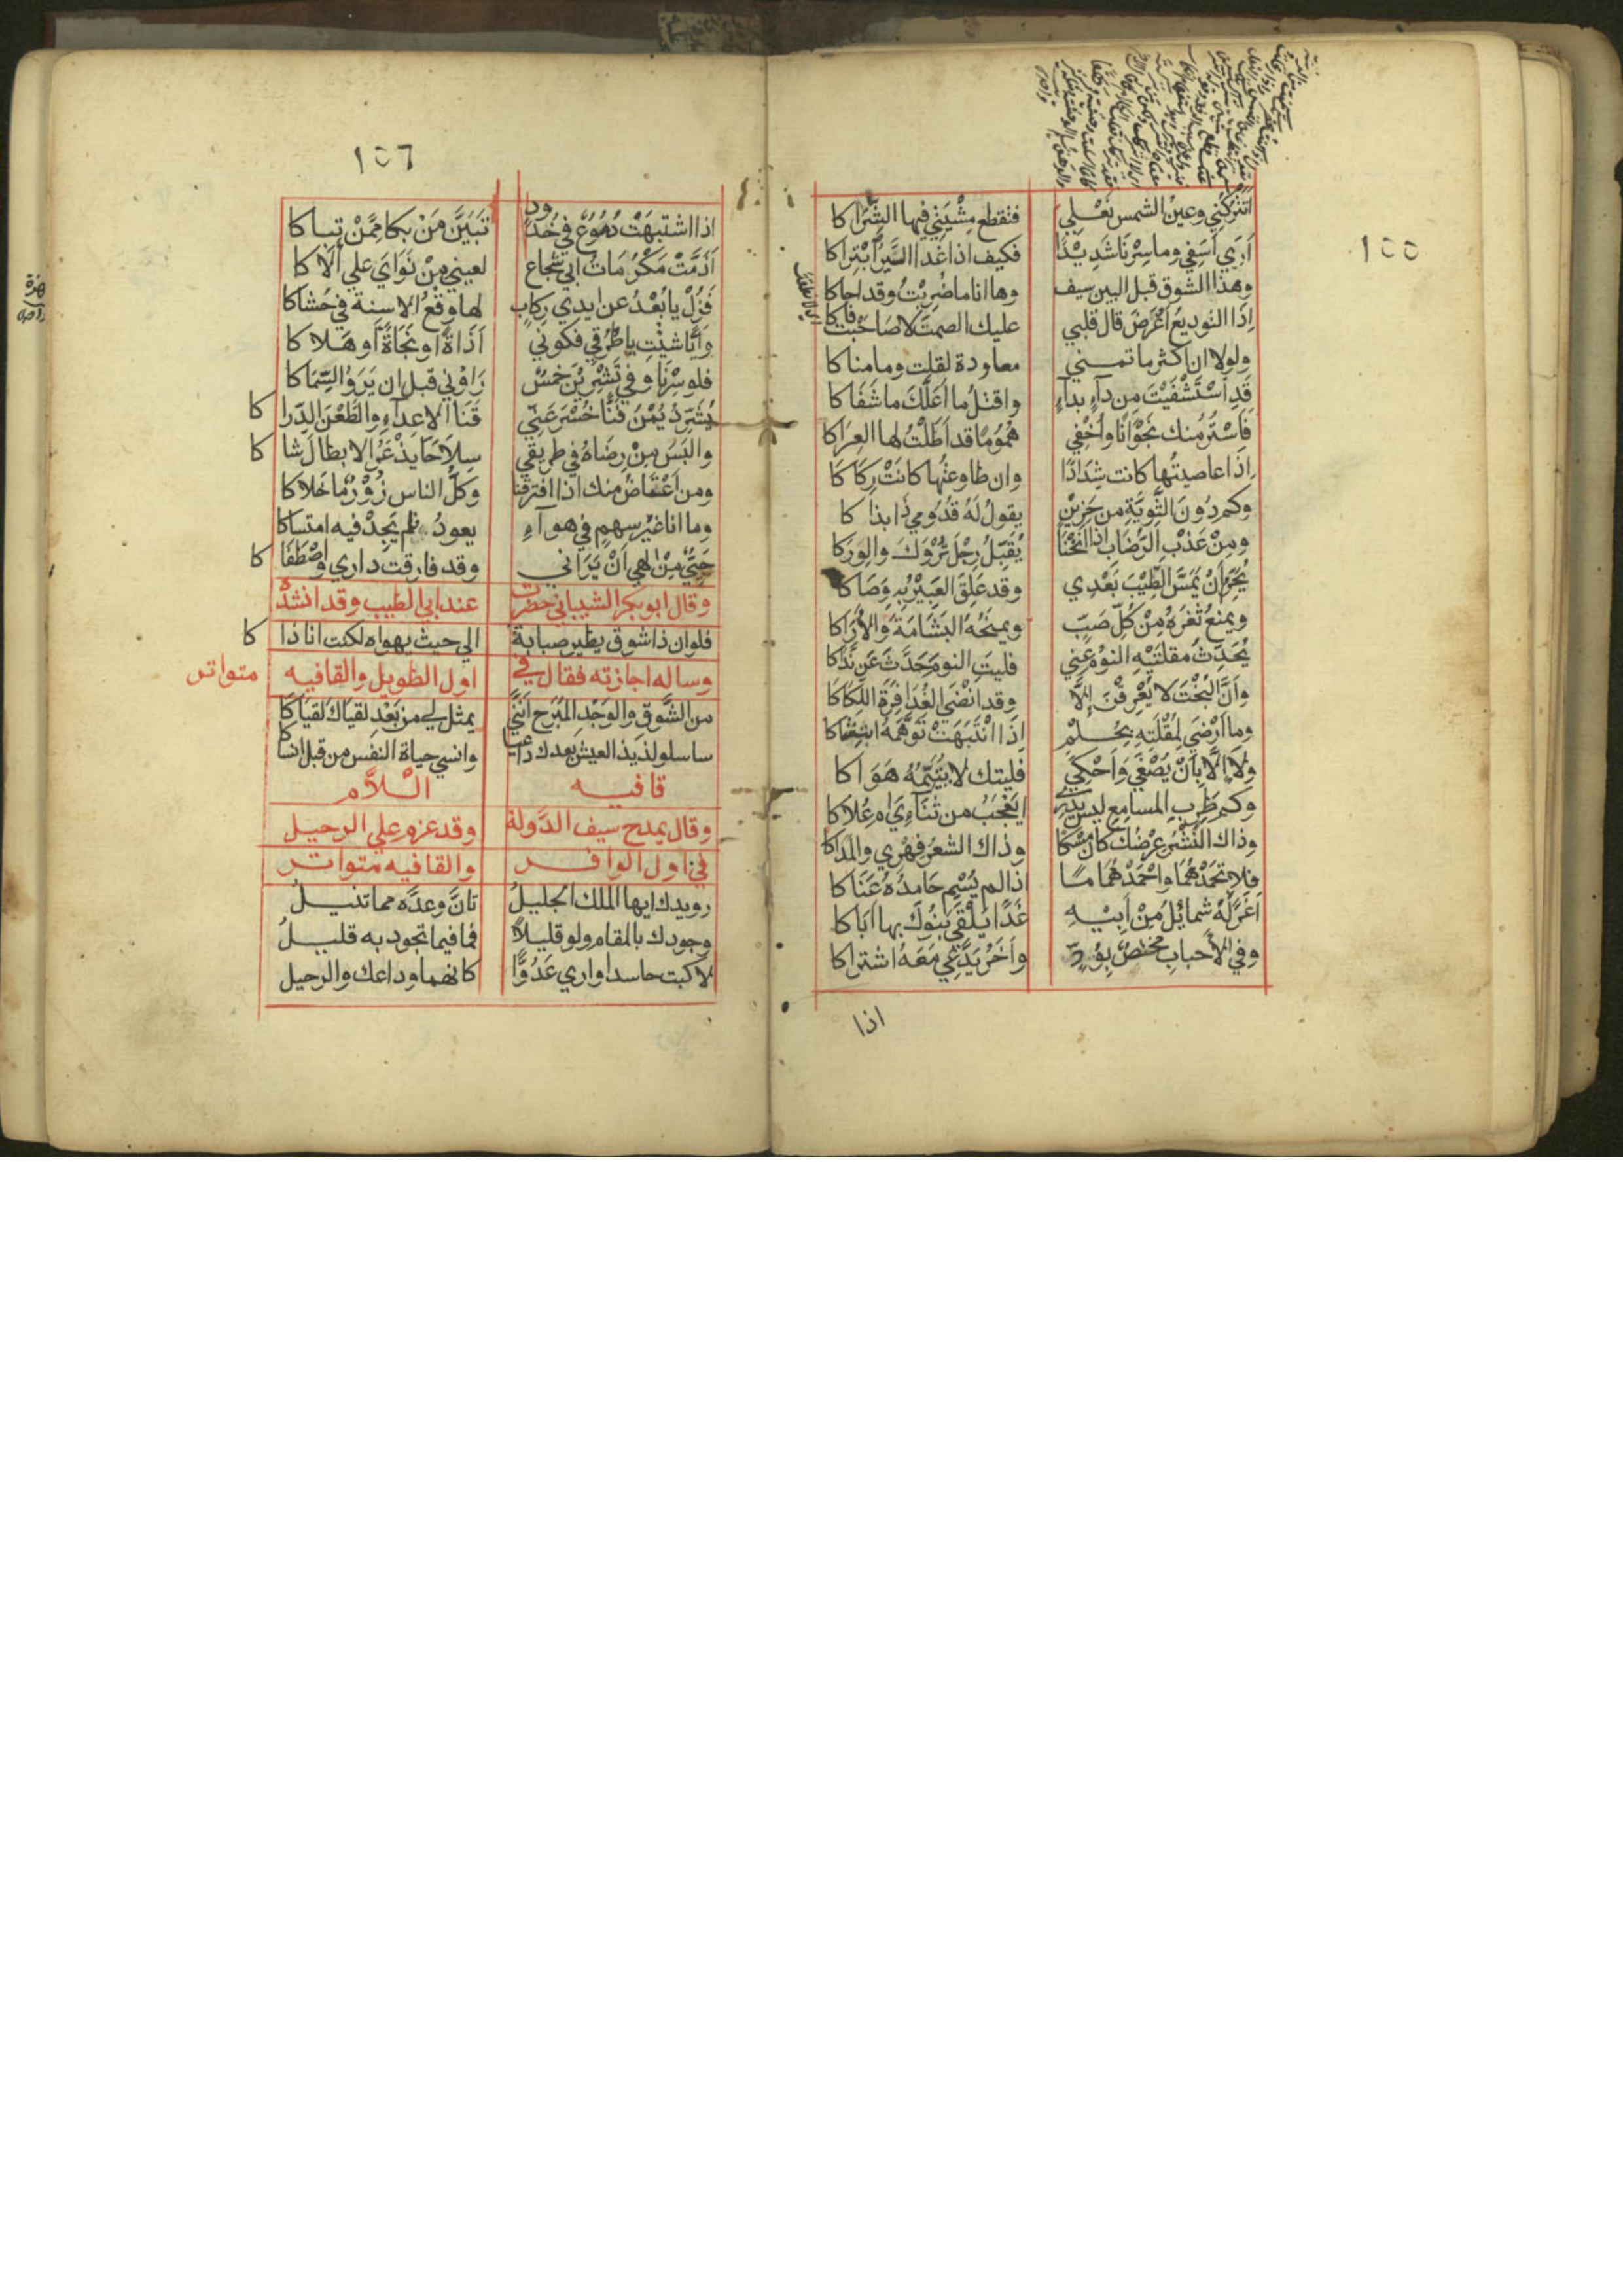 ١٥٥
اتتركني وعين الشمس نعلي فتقطع مشيتي فيها الشراكا
اري اسفي وما سرنا شديدا فكيف اذا غدا السير ابتراكا
وهذا الشوق قبل البين سيف وها انا ما ضربت وقد احاكا
اذا التوديع اعرض قال قلبي عليك الصمت لا صاحبت فاكا
ولولا ان اكثر ما تمني معاودة لقلت وما مناكا
قد استشفيت من داء بداء واقتل ما اعلك ما شفاكا
فاستر منك نجوانا واخفي هموما قد اطلت لها العراكا
اذا عاصيتها كانت شدادا وان طاوعتها كانت ركاكا
وكم دون الثوية من حزين يقول له قدومي ذا بذاكا
ومن عذب الرضاب اذا انخنا يقبل رجل تروك والوركا
يحرم ان يمس الطيب بعدي وقد علق العبير به وصاكا
ويمنع ثغره من كل صب ويمنحه البشامة والاراكا
يحدث مقلتيه النوم عني فليت النوم حدث عن نداكا
وان البخت لا يعرقن الا وقد انضي العذافرة اللكاكا
وما ارضي لمقلته بحلم اذا انتبهت توهمه ابتشاكا
ولا الا بان يصغي واحكي فليتك لا يتيمه هواكا
وكم طرب المسامع ليس يدري ايعجب من ثناءي ام علاكا
وذاك النشر عرضك كان مسكا وذاك الشعر فهري والمداكا
فلا تحمدهما واحمد هماما اذا لم يسم حامده عناكا
اغر له شمايل من ابيه غدا يلقي بنوك بها اباكا
وفي الاحباب مختص بود واخر يدعي معه اشتراكا
اذا
١٥٦
اذا اشتبهت دموع في خدود تبين من بكا ممن تباكا
اذمت مكرمات ابي شجاع لعيني من نواي علي الاكا
فزل يا بعد عن ايدي ركاب لها وقع الاسنة في حشاكا
وايا شيت يا طرقي فكوني اذاة او نجاة او هلاكا
فلو سرنا وفي تشرين خمس راوني قبل ان يروا السماكا
يشرد يمن فنا خسر عني قنا الاعداء والطعن الدراكا
والبس من رضاه في طريقي سلاحا يذعر الابطال شاكا
ومن اعتاض منك اذا افترقنا وكل الناس زور ما خلاكا
وما انا غير سهم في هواء يعود فلم يجد فيه امتساكا
حيي من الهي ان يراني وقد فارقت داري واصطفاكا
وقال ابو بكر الشيباني حضرت عند ابي الطيب وقد انشد
فلو ان ذا شوق يطير صبابة الي حيث يهواه لكنت انا ذاكا
وساله اجازته فقال في اول الطويل والقافيه متواتر
من الشوق والوجد المبرح انني يمثل لي من بعد لقياك لقياكا
ساسلو لذيذ العيش بعدك داعيا وانسي حياة النفس من قبل انساكا
قافيه اللام
وقال يمدح سيف الدولة وقد عزم علي الرحيل
في اول الوافر والقافيه متواتر
رويدك ايها الملك الجليل تان وعده مما تنيل
وجودك بالمقام ولو قليلا فما فيما تجود به قليل
لاكبت حاسدا واري عدوا كانهما وداعك والرحيل